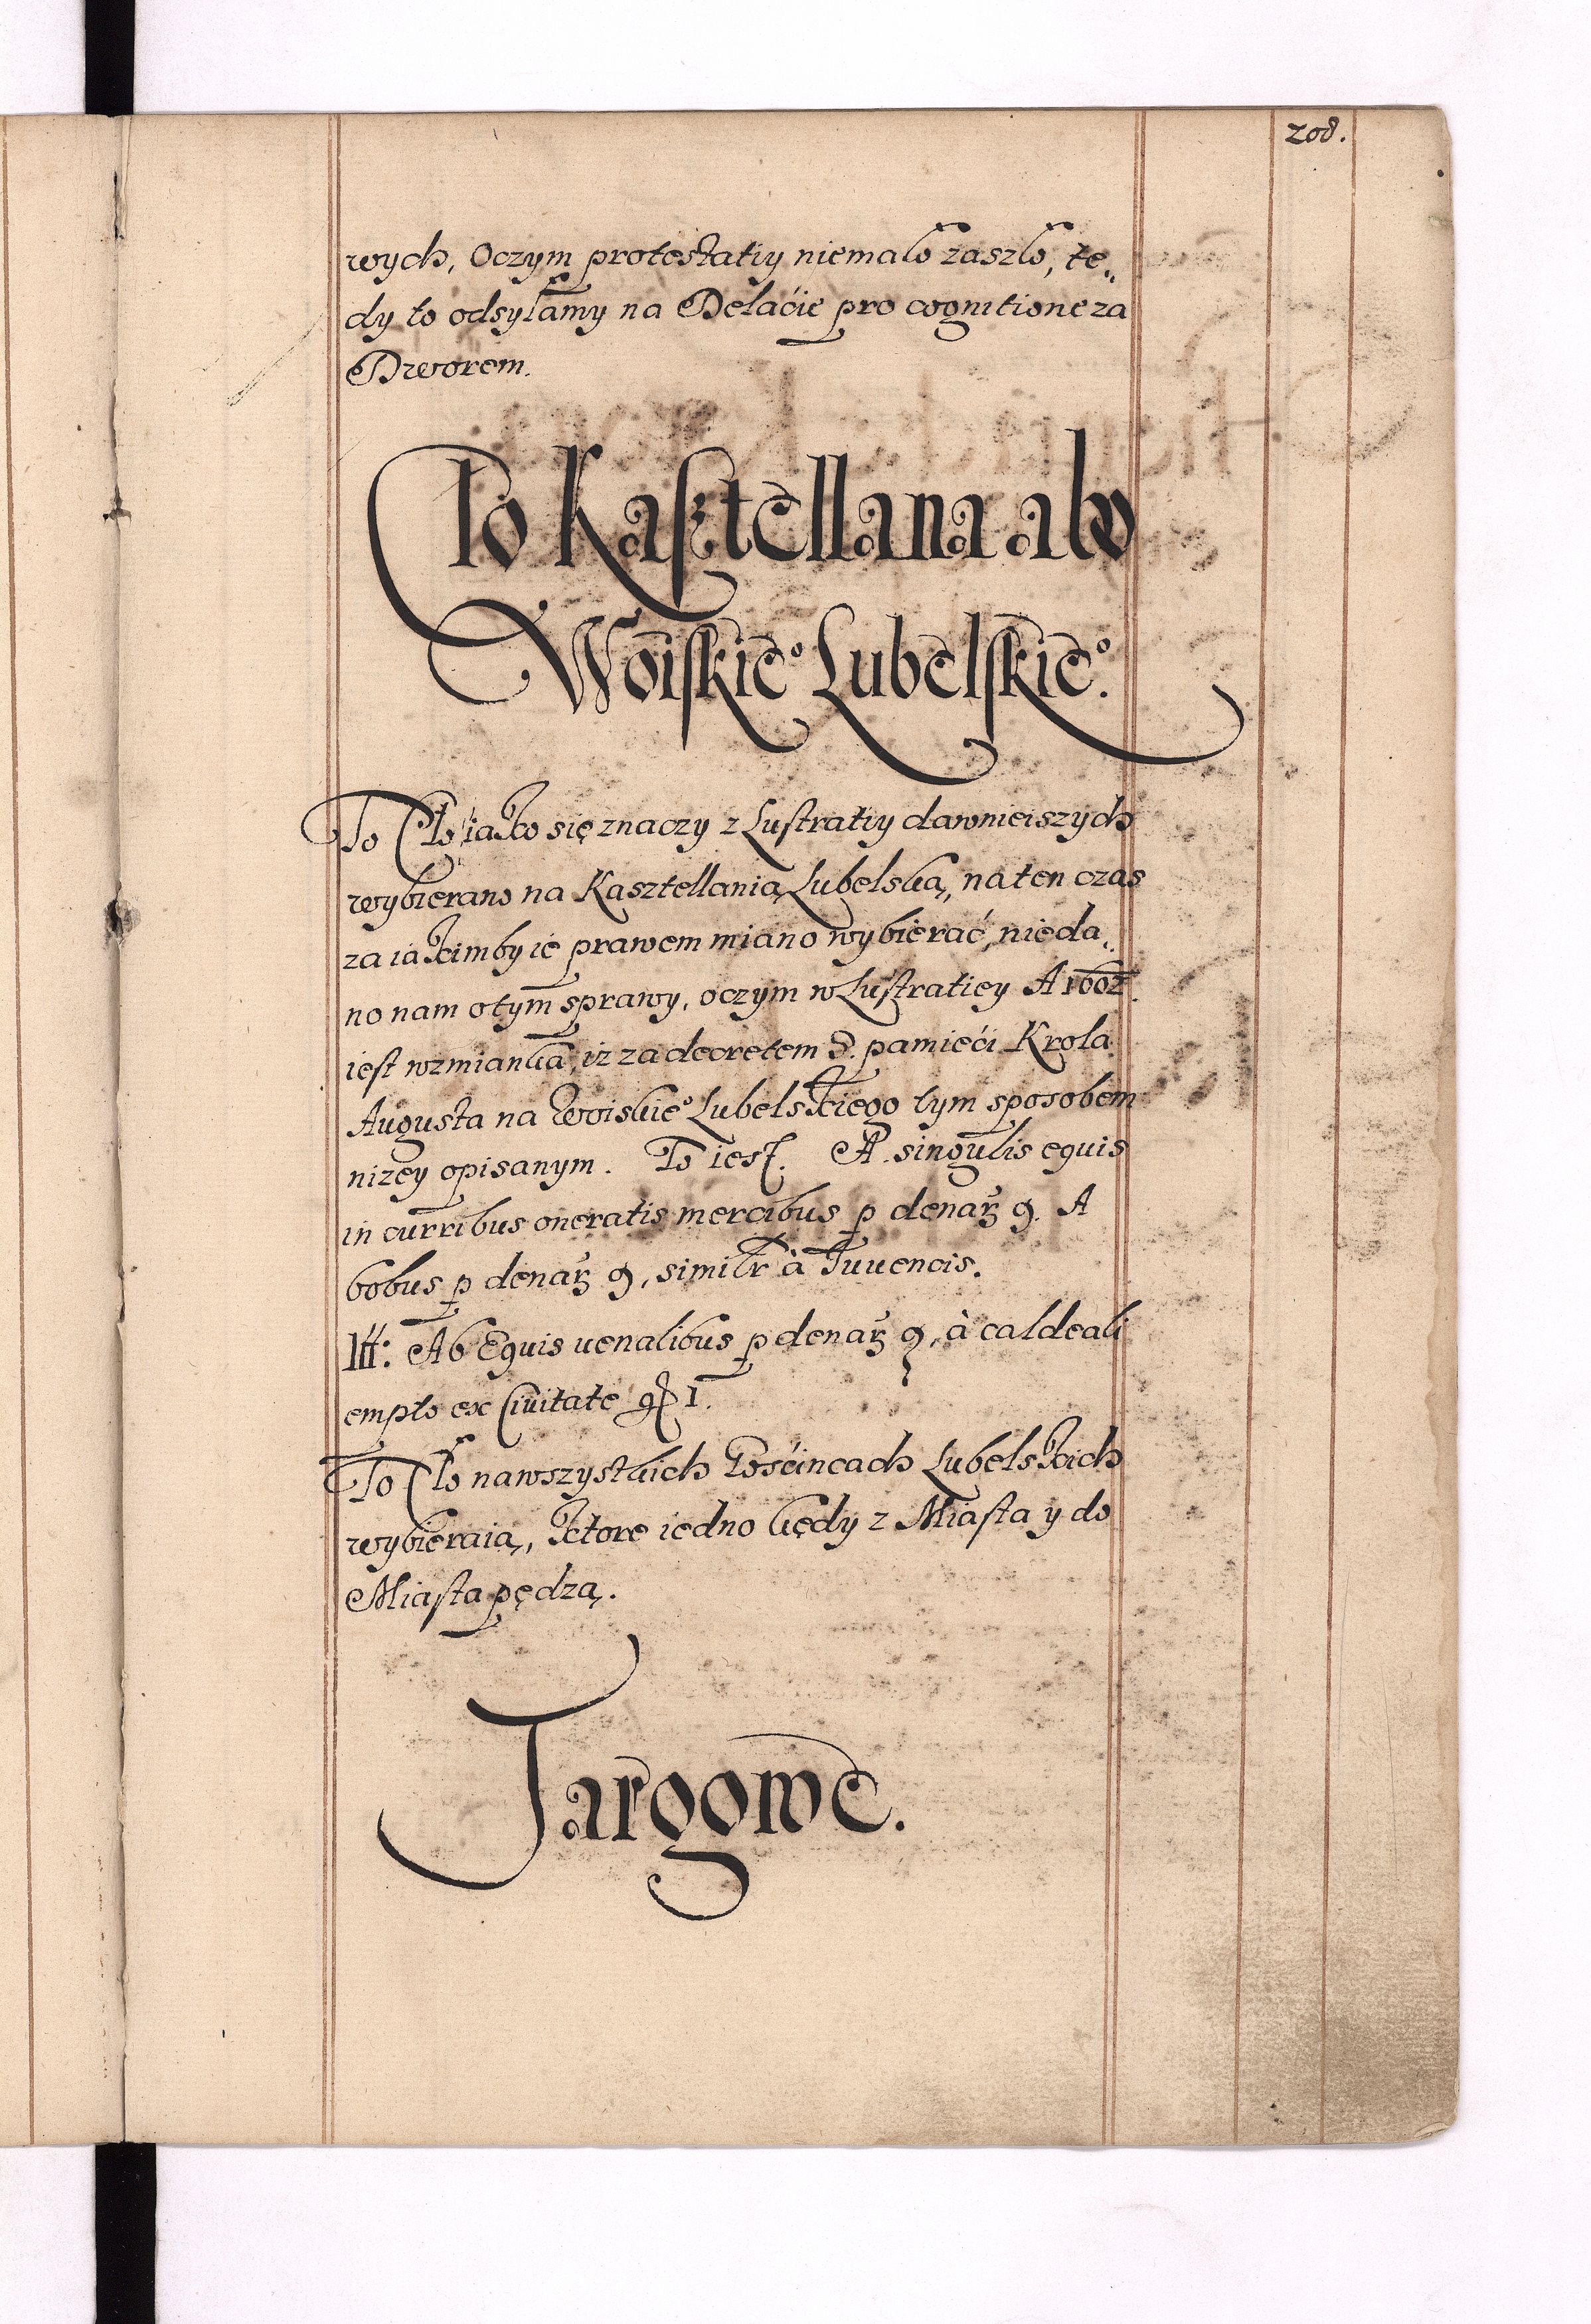 208.
wych, Oczym protestatiy niemało zaszło, te„
dy to odsyłamy na Delacie pro cognitione za
Dworem.
Cło Kasztellana abo
Woiskie° Lubelskie°.
To Cło iako się znaczy z Lustratiy dawnieiszych
wybierano na Kasztellanią Lubelską, na ten czas
za iakimby ie prawem miano wybierać, nieda„
no nam o tym sprawy, oczym w Lustratiey A 1602.
iest wzmianka, iz za decretem S. pamieći Krola
Augusta na Woiskie° Lubelskiego tym sposobem
nizey opisanym. To iest. A singulis equis
in curribus oneratis mercibus p denar 9. A
bobus p denar 9, similr à Iuuencis.
Itt: Ab Equis uenalibus p denar 9, à caldeali
empto ex Ciuitate gr 1.
To Cło na wszystkich Gośćincach Lubelskich
wybieraią, ktore iedno kiędy z Miasta y do
Miasta pędzą.
Targowe.